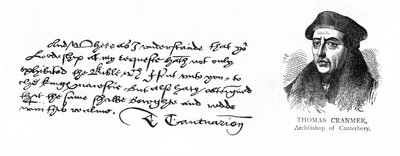 And, Whereas I understande that yor
Lordship at my requeste hath not only
exhibited the Bible wch I sent unto you, to
the Kinges majestie, but also hath obteigned
that the same shalbe boughte and redde
wthin his realme.
T Cantuarien
THOMAS CRANMER,
Archbishop of Canterbery.